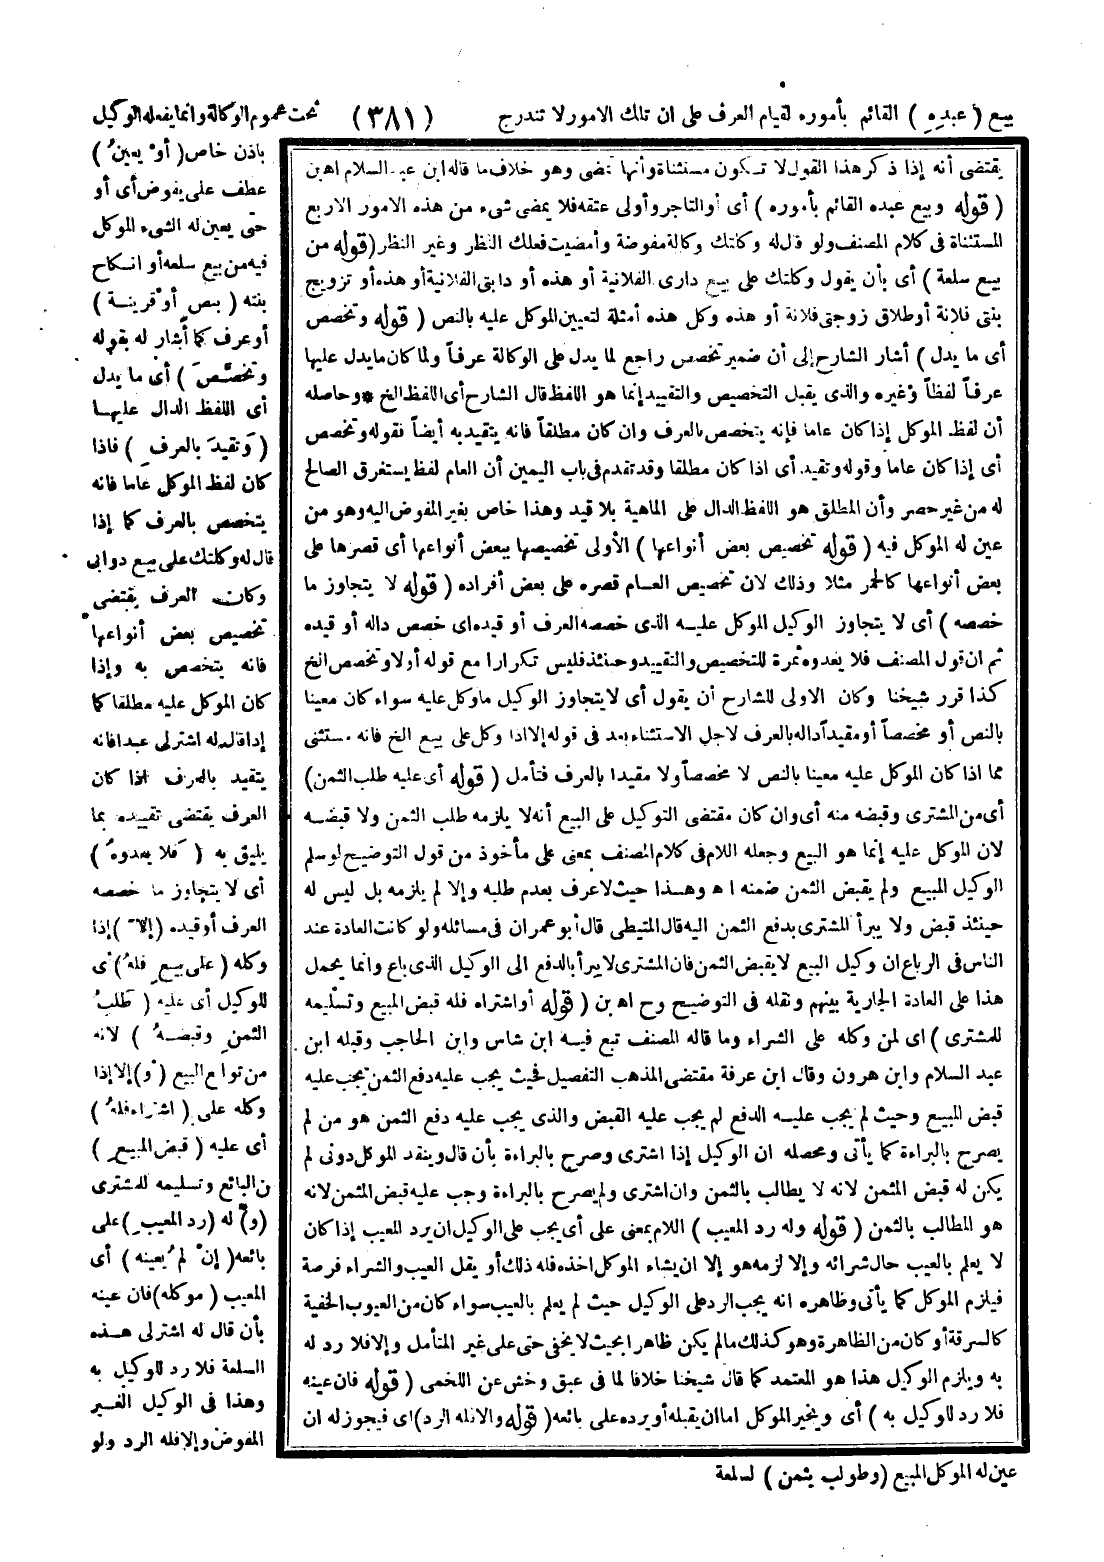 بيع ( عبده ) القائم بأموره لقيام العرف على ان تلك الامور لا تندرج (٣٨١) تحت عموم الوكالة وانما يفعله الوكيل
باذن خاص ( أو يعين )
عطف على يفوض أى أو
حتى يعين له الشىء الموكل
فيه من بيع سلعه أو انكاح
بنته ( بنص أو قرينة )
أو عرف كما أشار له بقوله
وتخصص ) أى ما يدل
أى اللفظ الدال عليها
( وتقيد بالعرف ) فاذا
كان لفظ الموكل عاما فانه
يتخصص بالعرف كما إذا
قال له وكلتك على بيع دوابى
وكان العرف يقتضى
تخصيص بعض أنواعها
فانه يتخصص به وإذا
كان الموكل عليه مطلقا كما
إذا قال له اشترلى عبدا فانه
يتقيد بالعرف اذا كان
العرف يقتضى تقييده بما
يليق به ( فلا يعدوه )
أى لا يتجاوز ما خصصه
العرف أو قيده ( إلا ) إذا
وكله ( على بيع فله ) أى
للوكيل أى عليه ( طلب
الثمن وقبضه ) لانه
من توابع البيع ( أو ) إلا إذا
وكله على ( اشتراء فله )
أى عليه ( قبض المبيع )
من البائع وتسليمه للمشترى
( و ) له ( رد المعيب ) على
بائعه ( إن لم يعينه ) أى
المعيب ( موكله ) فان عينه
بأن قال له اشترلى هذه
السلعة فلا رد للوكيل به
وهذا فى الوكيل الغير
المفوض وإلا فله الرد ولو
يقتضى أنه إذا ذكر هذا القول لا تكون مستثناة وأنها تمضى وهو خلاف ما قاله ابن عبد السلام اه بن
( قوله وبيع عبده القائم بأموره ) أى أو التاجر وأولى عتقه فلا يمضى شىء من هذه الامور الاربع
المستثناة فى كلام المصنف ولو قال له وكلتك وكالة مفوضة وأمضيت فعلك النظر وغير النظر ( قوله من
بيع سلعة ) أى بأن يقول وكلتك على بيع دارى الفلانية أو هذه أو دابتى الفلانية أو هذه أو تزويج
بنتى فلانة أو طلاق زوجتى فلانة أو هذه وكل هذه أمثلة لتعيين الموكل عليه بالنص ( قوله وتخصص
أى ما يدل ) أشار الشارح إلى أن ضمير تخصص راجع لما يدل على الوكالة عرفاً ولما كان ما يدل عليها
عرفاً لفظاً وغيره والذى يقبل التخصيص والتقييد إنما هو اللفظ قال الشارح أى اللفظ الخ * وحاصله
أن لفظ الموكل إذا كان عاما فإنه يتخصص بالعرف وان كان مطلقاً فانه يتقيد به أيضاً فقوله وتخصص
أى إذا كان عاما وقوله وتقيد. أى اذا كان مطلقا وقد تقدم فى باب اليمين أن العام لفظ يستغرق الصالح
له من غير حصر وأن المطلق هو اللفظ الدال على الماهية بلا قيد وهذا خاص بغير المفوض اليه وهو من
عين له الموكل فيه ( قوله تخصيص بعض أنواعها ) الأولى تخصيصها ببعض أنواعها أى قصرها على
بعض أنواعها كالحمر مثلا وذلك لان تخصيص العام قصره على بعض أفراده ( قوله لا يتجاوز ما
خصصه ) أى لا يتجاوز الوكيل الموكل عليه الذى خصصه العرف أو قيده اى خصص داله أو قيده
ثم ان قول المصنف فلا يعدوه ثمرة للتخصيص والتقييد وحينئذ فليس تكرارا مع قوله أولا وتخصص الخ
كذا قرر شيخنا وكان الاولى للشارح أن يقول أى لا يتجاوز الوكيل ما وكل عليه سواء كان معينا
بالنص أو مخصصاً أو مقيداً داله بالعرف لاجل الاستثناء بعد فى قوله إلا اذا وكل على بيع الخ فانه مستثنى
مما اذا كان الموكل عليه معينا بالنص لا مخصصاً ولا مقيدا بالعرف فتأمل ( قوله أى عليه طلب الثمن )
أى من المشترى وقبضه منه أى وان كان مقتضى التوكيل على البيع أنه لا يلزمه طلب الثمن ولا قبضه
لان الموكل عليه إنما هو البيع وجعله اللام فى كلام المصنف بمعنى على مأخوذ من قول التوضيح لو سلم
الوكيل المبيع ولم يقبض الثمن ضمنه اه وهذا حيث لا عرف بعدم طلبه وإلا لم يلزمه بل ليس له
حينئذ قبض ولا يبرأ المشترى بدفع الثمن اليه قال المتيطى قال أبو عمران فى مسائله ولو كانت العادة عند
الناس فى الرباع ان وكيل البيع لا يقبض الثمن فان المشترى لا يبرأ بالدفع الى الوكيل الذى باع وانما يحمل
هذا على العادة الجارية بينهم ونقله فى التوضيح وح اه بن ( قوله أو اشتراء فله قبض المبيع وتسليمه
للمشترى ) اى لمن وكله على الشراء وما قاله المصنف تبع فيه ابن شاس وابن الحاجب وقبله ابن
عبد السلام وابن هرون وقال ابن عرفة مقتضى المذهب التفصيل فحيث يجب عليه دفع الثمن يجب عليه
قبض المبيع وحيث لم يجب عليه الدفع لم يجب عليه القبض والذى يجب عليه دفع الثمن هو من لم
يصرح بالبراءة كما يأتى ومحصله ان الوكيل إذا اشترى وصرح بالبراءة بأن قال وينقد الموكل دونى لم
يكن له قبض المثمن لانه لا يطالب بالثمن وان اشترى ولم يصرح بالبراءة وجب عليه قبض المثمن لانه
هو المطالب بالثمن ( قوله وله رد المعيب ) اللام بمعنى على أى يجب على الوكيل ان يرد المعيب إذا كان
لا يعلم بالعيب حال شرائه وإلا لزمه هو إلا ان يشاء الموكل اخذه فله ذلك أو يقل العيب والشراء فرصة
فيلزم الموكل كما يأتى وظاهره انه يجب الرد على الوكيل حيث لم يعلم بالعيب سواء كان من العيوب الخفية
كالسرقة أو كان من الظاهرة وهو كذلك مالم يكن ظاهرا بحيث لا يخفى حتى على غير المتأمل وإلا فلا رد له
به ويلزم الوكيل هذا هو المعتمد كما قال شيخنا خلافا لما فى عبق وخش عن اللخمى ( قوله فان عينه
فلا رد للوكيل به ) أى ويخير الموكل اما ان يقبله أو يرده على بائعه ( قوله والا فله الرد ) اى فيجوز له ان
عين له الموكل المبيع ( وطولب بثمن ) لسلعة